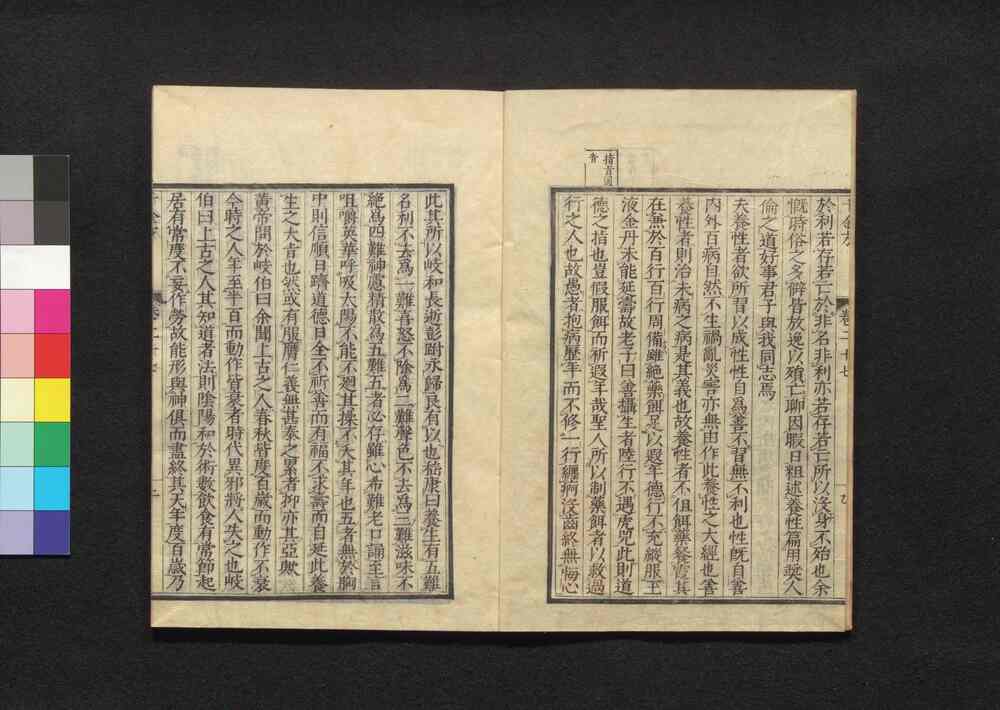 於利若存若亡於非名非利亦若存若亡所以沒身不殆也余
慨時俗之多僻皆放逸以殞亡聊因暇日粗述養性篇用奬人
倫之道好事君子與我同志焉
夫養性者欲所習以成性性自爲善不習無不利也性旣自善
内外百病自然不生禍亂災害亦無由作此養性之大經也善
養性者則治未病之病是其義也故養性者不但餌藥飡霞其
在兼於百行百行周備雖絶藥餌足以遐年德行不充縱服玉
液金丹未能延壽故老子曰善攝生者陸行不遇虎兕此則道
德之指也豈假服餌而祈遐年哉聖人所以制藥餌者以救過
行之人也故愚者抱病歷年而不修一行纏痾沒齒終無悔心
此其所以岐和長逝彭跗永歸良有以也嵇康曰養生有五難
名利不去爲一難喜怒不除爲二難聲色不去爲三難滋味不
絶爲四難神慮精散爲五難五者必存雖心希難老口誦至言
咀嚼英華呼吸太陽不能不廻其操不夭其年也五者無於胸
中則信順日躋道德日全不祈善而有福不求壽而自延此養
生之大旨也然或有服膺仁義無甚泰之累者抑亦其亞歟
黃帝問於岐伯曰余聞上古之人春秋皆度百歲而動作不衰
今時之人年至半百而動作皆衰者時代異邪將人失之也岐
伯曰上古之人其知道者法則陰陽和於術數飲食有常節起
居有常度不妄作勞故能形與神俱而盡終其天年度百歲乃